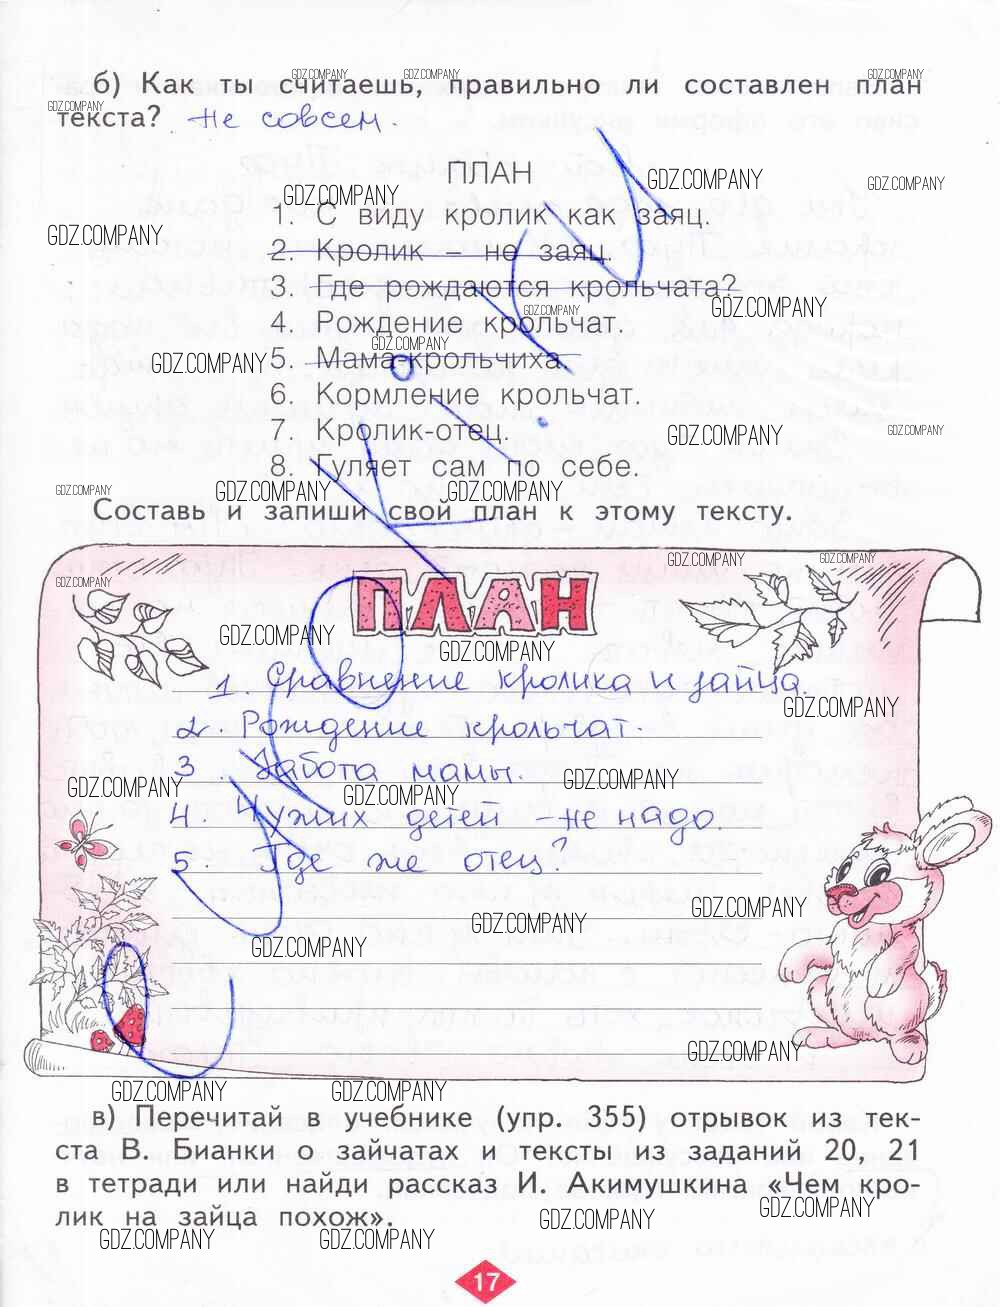 б) Как ты считаешь, правильно ли составлен план
текста? Не совсем.
ПЛАН
1. С виду кролик как заяц.
2. Кролик – не заяц.
3. Где рождаются крольчата?
4. Рождение крольчат.
5. Мама-крольчиха.
6. Кормление крольчат.
7. Кролик-отец.
8. Гуляет сам по себе.
Составь и запиши свой план к этому тексту.
ПЛАН
1. Сравнение кролика и зайца.
2. Рождение крольчат.
3. Забота мамы.
4. Чужих детей – не надо.
5. Где же отец?
в) Перечитай в учебнике (упр. 355) отрывок из тек-
ста В. Бианки о зайчатах и тексты из заданий 20, 21
в тетради или найди рассказ И. Акимушкина «Чем кро-
лик на зайца похож».
17
GDZ.COMPANY